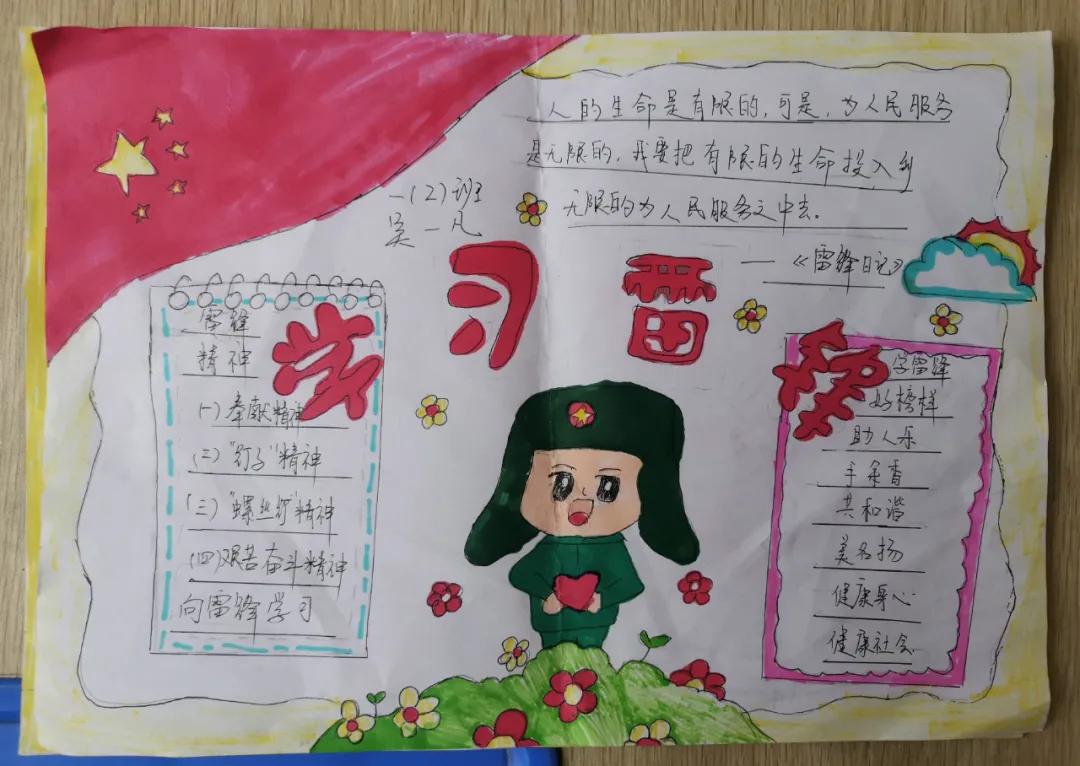 人的生命是有限的，可是，为人民服务
是无限的，我要把有限的生命投入到
无限的为人民服务之中去。
—《雷锋日记》
一(2)班
吴一凡
学习雷锋
雷锋
精神
(一)奉献精神
(二)"钉子"精神
(三)"螺丝钉"精神
(四)艰苦奋斗精神
向雷锋学习
学雷锋
好榜样
助人乐
手余香
共和谐
美名扬
健康身心
健康社会